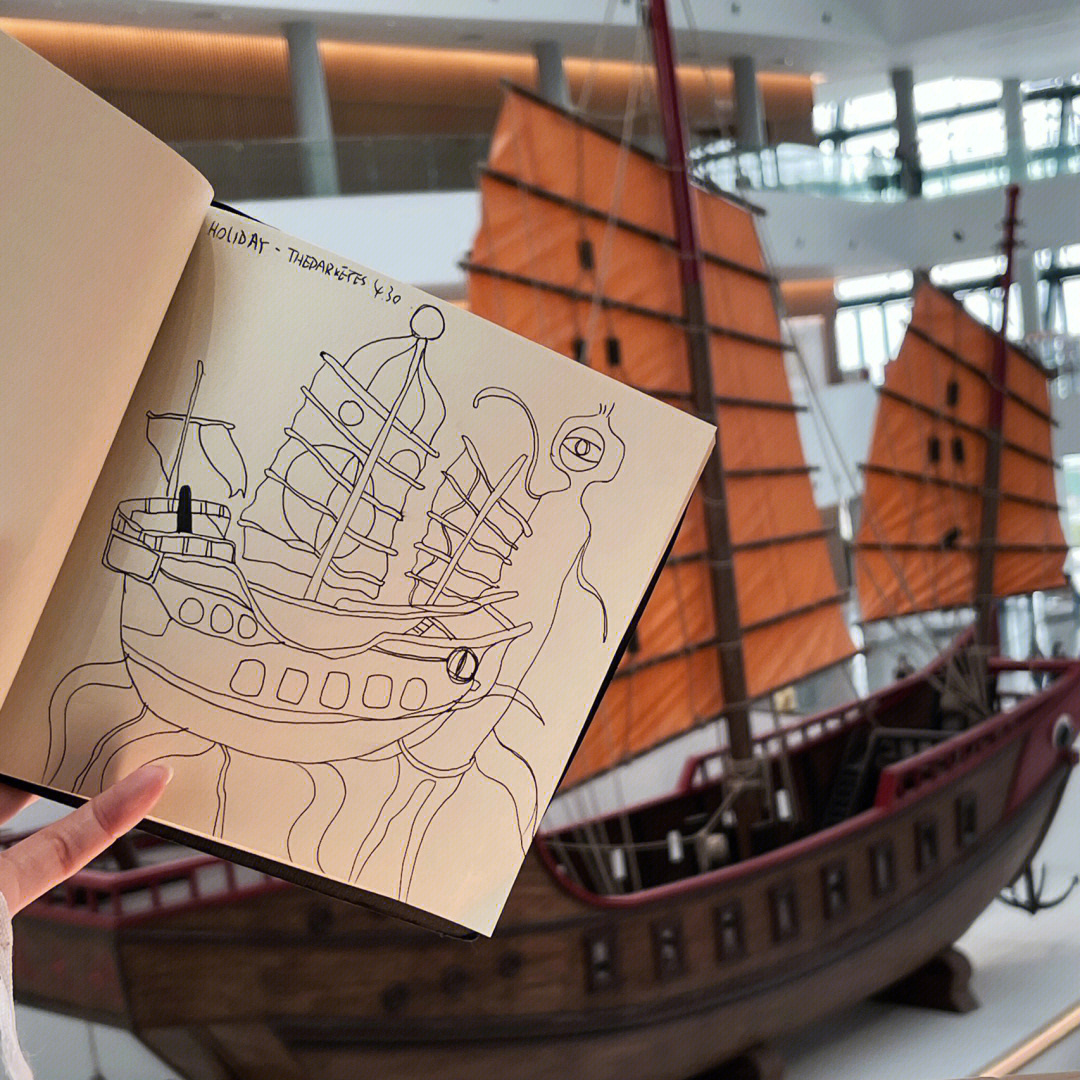 HOLIDAY - THEDARKEYES 4.30